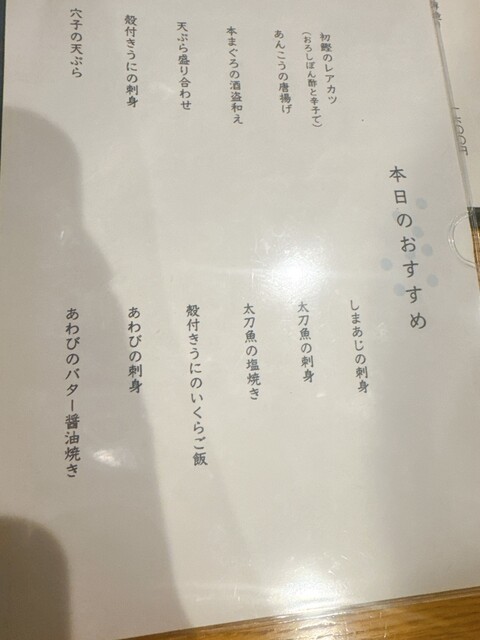 本日のおすすめ
初鰹のレアカツ
(おろしぽん酢と辛子で)
あんこうの唐揚げ
本まぐろの酒盗和え
天ぷら盛り合わせ
殻付きうにの刺身
穴子の天ぷら
しまあじの刺身
太刀魚の刺身
太刀魚の塩焼き
殻付きうにのいくらご飯
あわびの刺身
あわびのバター醤油焼き